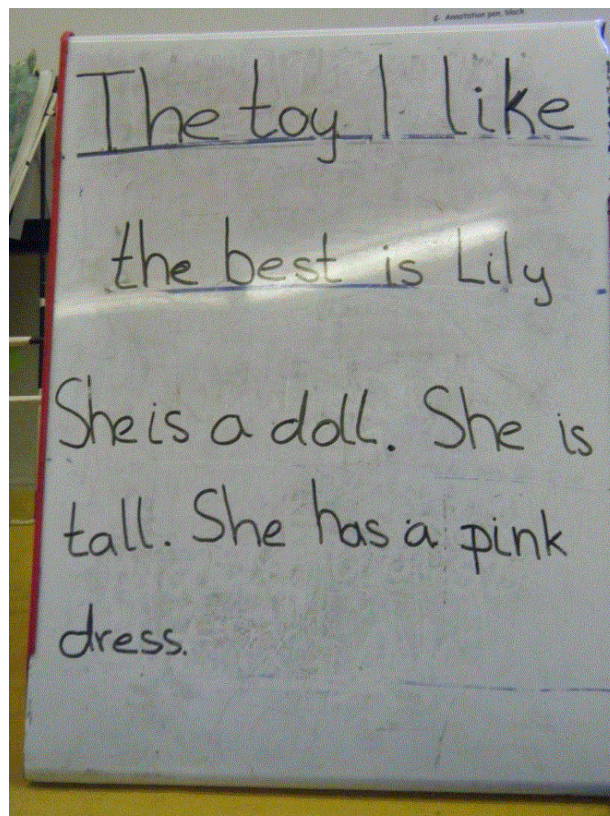 6 Annotation pen, black
The toy I like
the best is Lily
She is a doll. She is
tall. She has a pink
dress.